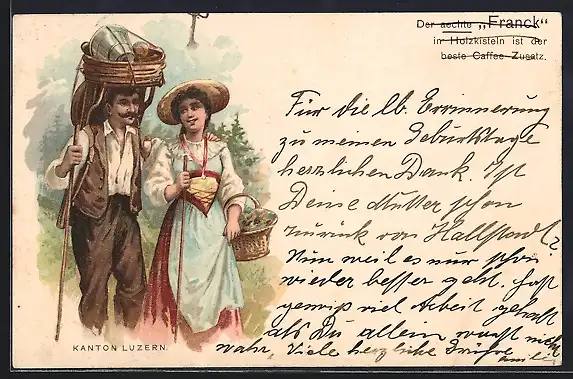 Der aechte „Franck“
in Holzkisteln ist der
beste Caffee-Zusatz.
Für die lb. Errinnerung
zu meinen Geburtstage
herzlichen Dank. Ist
Deine Mutter schon
zurück von Hallstadt?
Nun weil es nur schon
wieder besser geht, hast
gewiß viel Arbeit gehabt
als Du allein warst nicht
wahr, Viele herzliche Grüße
KANTON LUZERN.